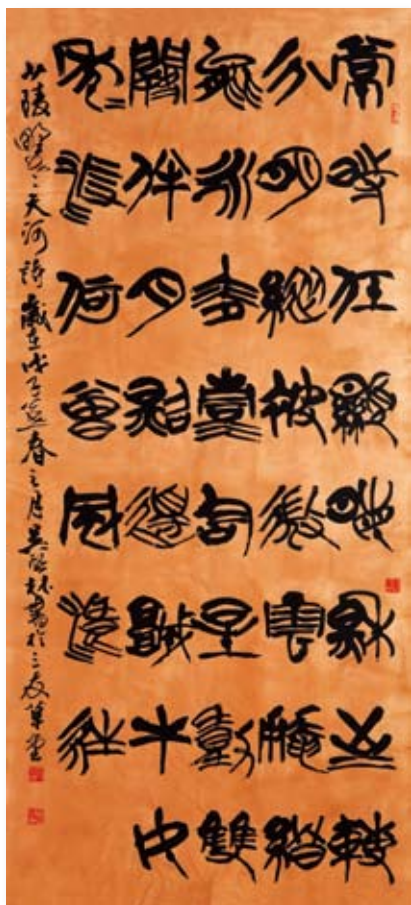 常時任顯晦秋至輒
分明縱被微雲掩終
能永夜清含星動雙
闕伴月照邊城牛女
年渡何曾風浪生
少陵野老之天河詩歲在戊子孟春之月吳林書於三友草堂